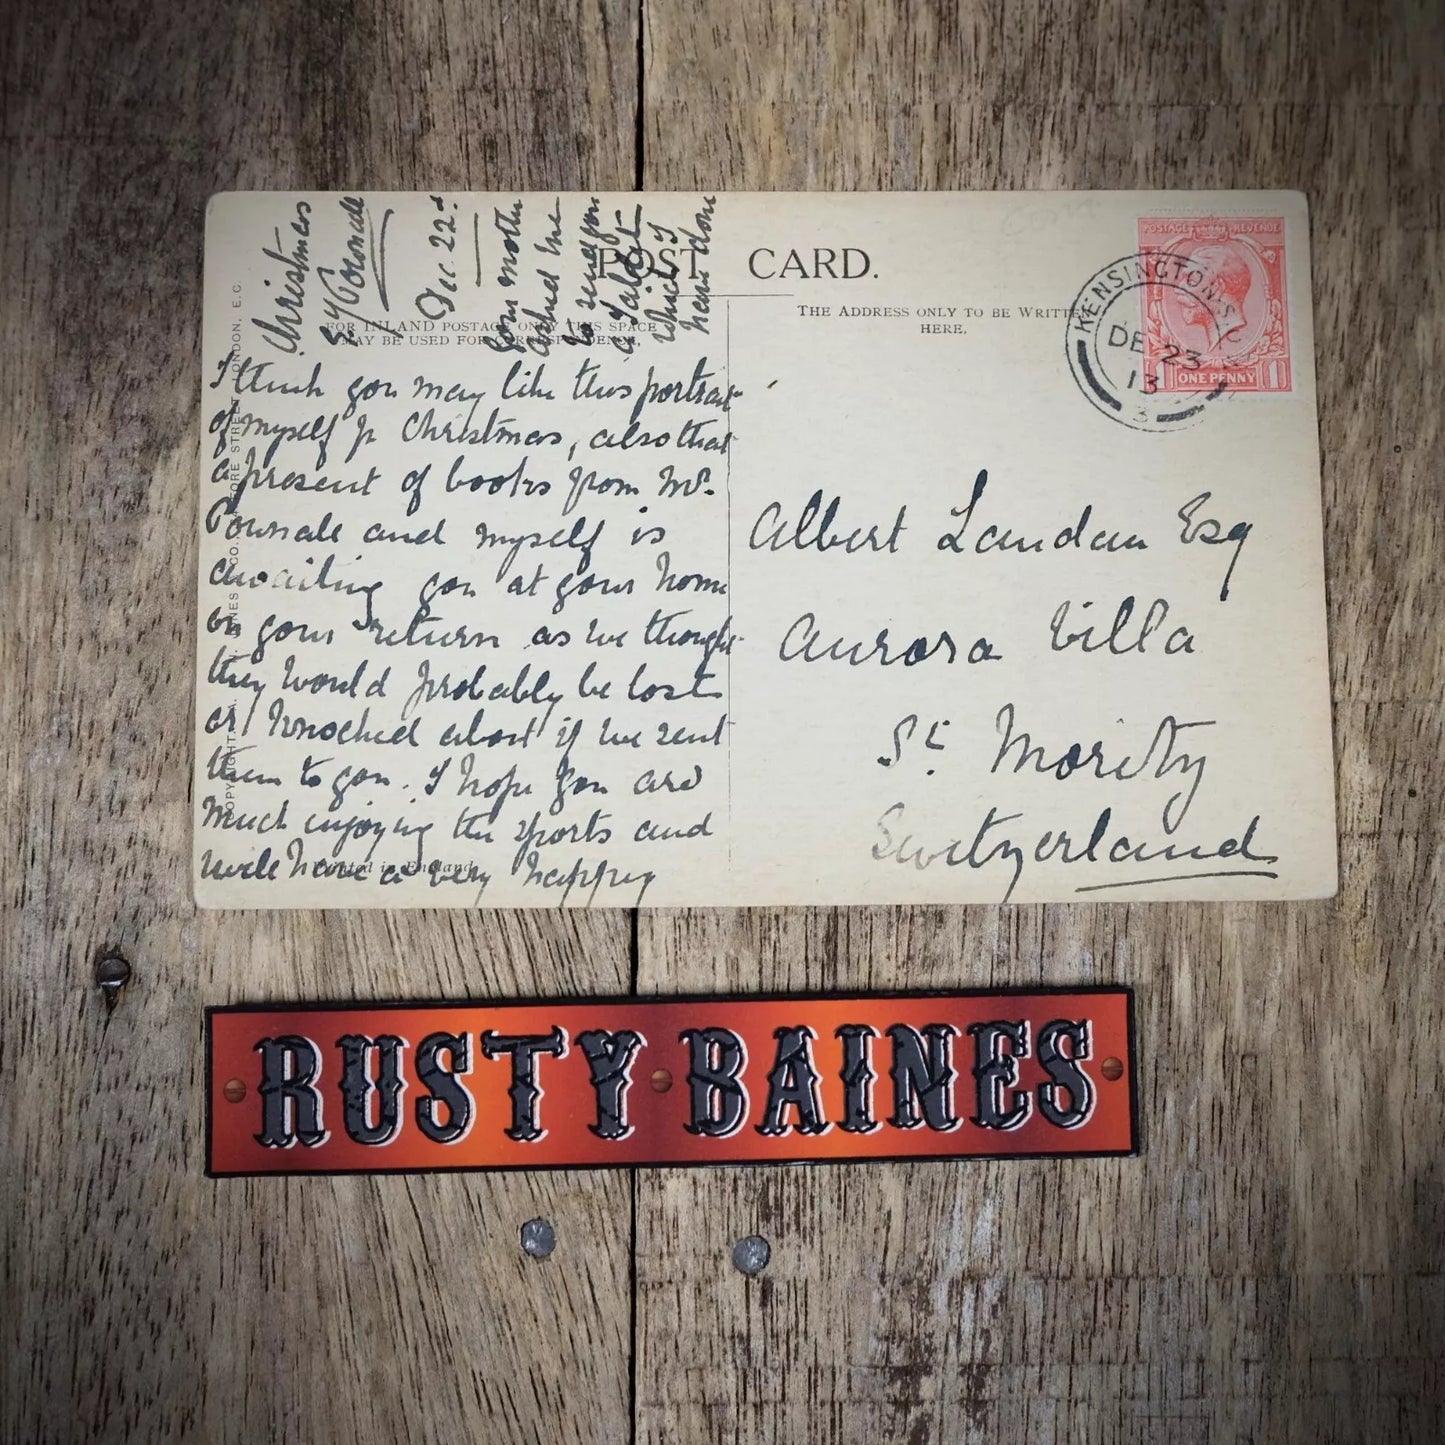 POST CARD.
FOR INLAND POSTAGE ONLY THIS SPACE
MAY BE USED FOR CORRESPONDENCE.
THE ADDRESS ONLY TO BE WRITTEN
HERE.
KENSINGTON.S.
DE 23
13
3
POSTAGE REVENUE
1 ONE PENNY 1
I think you may like this portrait
of myself for Christmas, also that
a present of books from Mr.
Pownall and myself is
awaiting you at your home
on your return as we thought
they would probably be lost
or knocked about if we sent
them to you. I hope you are
much enjoying the sports and
will have a very happy
Christmas
Dec. 22d
your mother
asked me
to send you
a
which I
have done
Albert Landau Esq
Aurora Villa
St. Moritz
Switzerland
STREET LONDON, E.C.
Printed in England
RUSTY BAINES